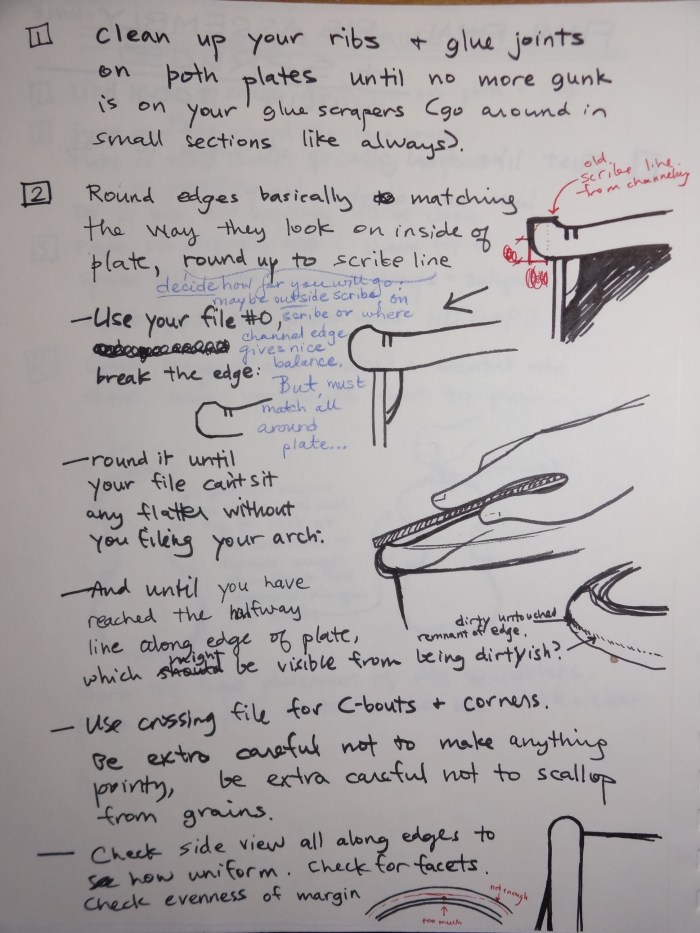 1 Clean up your ribs + glue joints
on both plates until no more gunk
is on your glue scrapers (go around in
small sections like always).
old
scribe line
from channeling
2 Round edges basically matching
the way they look on inside of
plate, round up to scribe line
decide how far you will go:
maybe outside scribe, on
scribe or where
channel edge
gives nice
balance.
But, must
match all
around
plate...
- Use your file #0,
break the edge:
- round it until
your file can't sit
any flatter without
you filing your arch.
- And until you have
reached the halfway
line along edge of plate,
which might be visible from being dirtyish?
dirty untouched
remnant of edge.
- Use crossing file for C-bouts + corners.
Be extra careful not to make anything
pointy, be extra careful not to scallop
from grains.
- Check side view all along edges to
see how uniform. Check for facets.
Check evenness of margin
not enough
too much